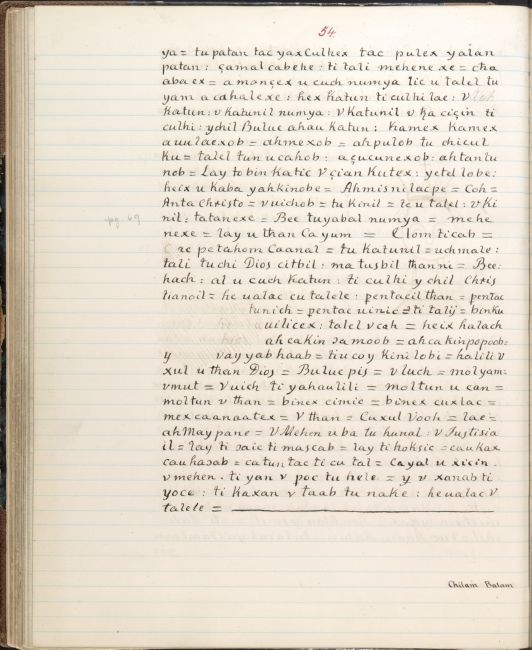 54.
ya = tu patan tac yax Culhex tac pulex yalan
patan : çamal cabehe : ti tali mehene xe = cha
aba ex = a monçex u cuch numya lic u talel tu
yam a cahalexe : hex Katun ti culhi lae : v
Katun : v katunil numya : v Katunil v ciçin ti
culhi : ychil Buluc ahau Katun : Kamex Kamex
a uulaexob = ahmexob = ahpulob tu chicul
Ku = talel tun u cahob : a çucunexob : ahtantu
nob = Lay tobin katic v çian Kutex : yetel lobe :
heix u Kaba yahkinobe = Ahmisnilacpe = Coh =
Anta Christo = v uichob = tu Kinil = le u talel : v Ki
pg. 69
nil : tatanexe = Bee tuyabal numya = mehe
nexe = lay u than Ca yum = Elom ti cab =
petahom Caanal = tu Katunil = uchmale :
tali tuchi Dios citbil : ma tusbil thanni = Bee :
hach : al u cuch Katun : ti culhi y chil Chris
tianoil = he ualac cu talele : pentacil than = pentac
tunich = pentac uinic = ti talij = binku
uilicex : talel v cah = heix halach
ahcakin samoob = ahcakinpopoob :
y vay yab haab = tiu coy Kini lobi = halili v
xul u than Dios = Buluc pis = v luch = molyam :
vmut = Vuich ti yahaulili = moltun u can =
moltun v than = binex cimic = binex cuxlac =
mex caanaatex = V than = Cuxul Vooh = lae =
ah May pane = V Mehen uba tu hunal : v Justisia
il = lay ti saic ti mascab = lay ti hoksic = caukax
cauhasab = ca tun tac ti cu tal = Cayal u xicin.
v mehen . ti yan v poc tu hele = y v xanab ti
yoce : ti Kaxan v taab tu nake : he ualac v
talele =
Chilam Balam